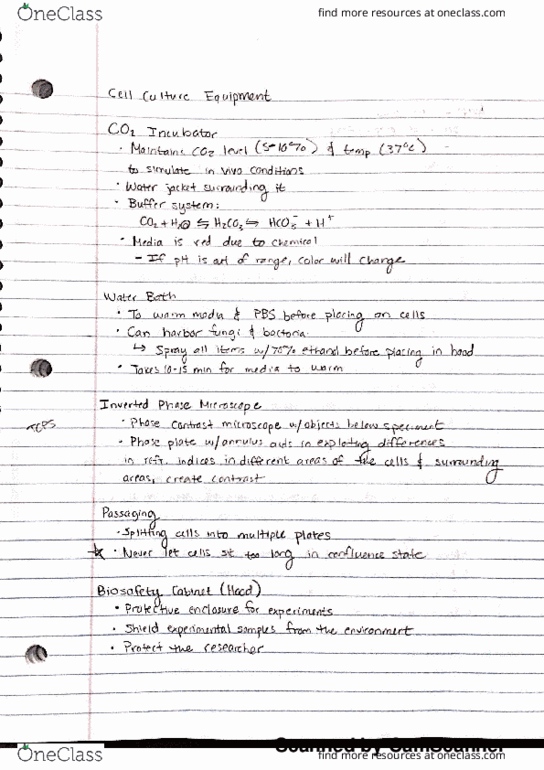 OneClass
find more resources at oneclass.com
Cell Culture Equipment
CO2 Incubator
• Maintains CO2 level (5-10%) & temp (37°C)
to simulate in vivo conditions
• Water jacket surrounding it
• Buffer system:
CO2 + H2O ⇆ H2CO3 ⇆ HCO3⁻ + H⁺
• Media is red due to chemical
- If pH is out of range, color will change
Water Bath
• To warm media & PBS before placing on cells
• Can harbor fungi & bacteria
↳ Spray all items w/70% ethanol before placing in hood
• Takes 10-15 min for media to warm
Inverted Phase Microscope
TCPS
• Phase contrast microscope w/objects below specimen
• Phase plate w/annulus aids in exploiting differences
in refr. indices in different areas of the cells & surrounding
areas, create contrast
Passaging
• Splitting cells into multiple plates
* • Never let cells sit too long in confluence state
Biosafety Cabinet (Hood)
• Protective enclosure for experiments
• Shield experimental samples from the environment
• Protect the researcher
Scanned by CamScanner
OneClass
find more resources at oneclass.com